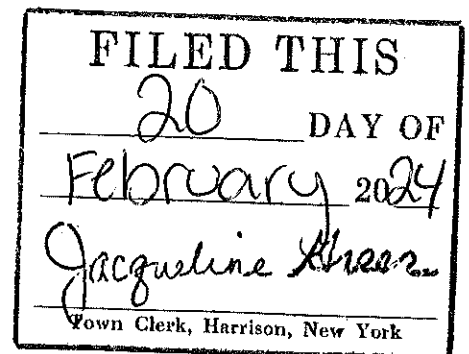 FILED THIS
20 DAY OF
February 2024
Jacqueline
Town Clerk, Harrison, New York